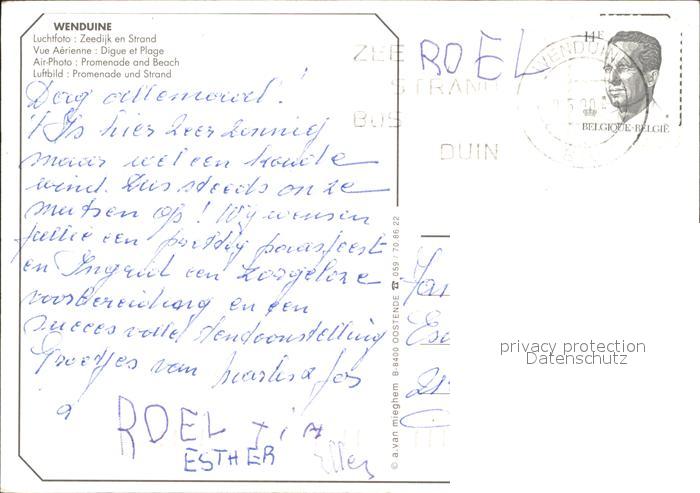 WENDUINE
Luchtfoto : Zeedijk en Strand
Vue Aérienne : Digue et Plage
Air-Photo : Promenade and Beach
Luftbild : Promenade und Strand
Dag allemaal !
't Is hier zeer zonnig
maar wel een koude
wind. Dus steeds onze
mutsen op ! Wij wensen
jullie een prettig paasfeest
en Ingrid een zorgeloze
voorbereiding en een
succesvolle tentoonstelling
Groetjes van Jos
ROEL
ESTHER
Ellen
ROEL
ZEE
STRAND
BOS
DUIN
WENDUINE
11F
BELGIQUE-BELGIË
© a.van mieghem B-8400 OOSTENDE ☎ 059 / 70.86.22
privacy protection
Datenschutz